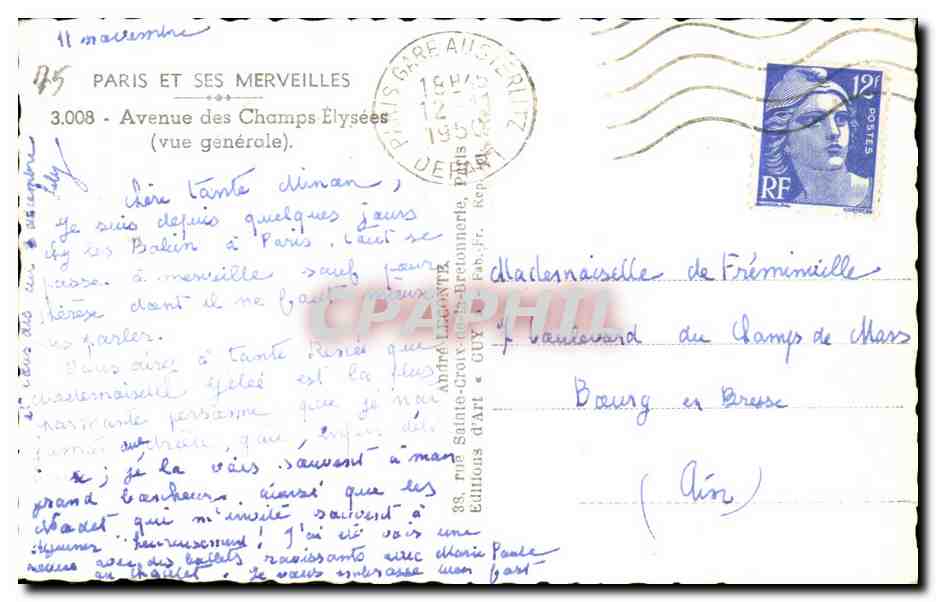 11 novembre
75
PARIS ET SES MERVEILLES
3.008 - Avenue des Champs-Élysées
(vue générale).
Chère tante Minan,
Je suis depuis quelques jours
les Balin à Paris. Tout se
passe à merveille sauf pour
thérèse dont il ne faut mieux
pas parler.
Vous direz à tante Renée que
Mademoiselle Gelée est la plus
charmante personne que je n'ai
jamais drôle, gaie, enfin
je la vois souvent à mon
grand bonheur, ainsi que les
Nadet qui m'invite souvent à
déjeuner heureusement! J'ai été voir une
revue avec des ballets ravissants avec Marie Paule
au Châtelet. Je vous embrasse mon fort
décembre
André LECONTE
38, rue Sainte-Croix-de-la-Bretonnerie, Paris
Editions d'Art « GUY » Fab.-Fr. Rep.
PARIS GARE AUSTERLITZ
1950
DEPART
12F
POSTES
RF
CPAPHIL
Mademoiselle de Fréminville
7 boulevard du Champs de Mars
Bourg en Bresse
(Ain)